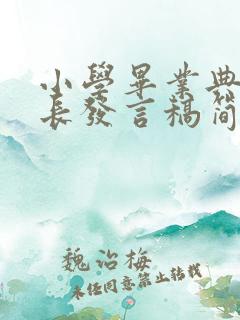 小學畢業典
長發言稿簡
魏治梅
未经同意禁止转载